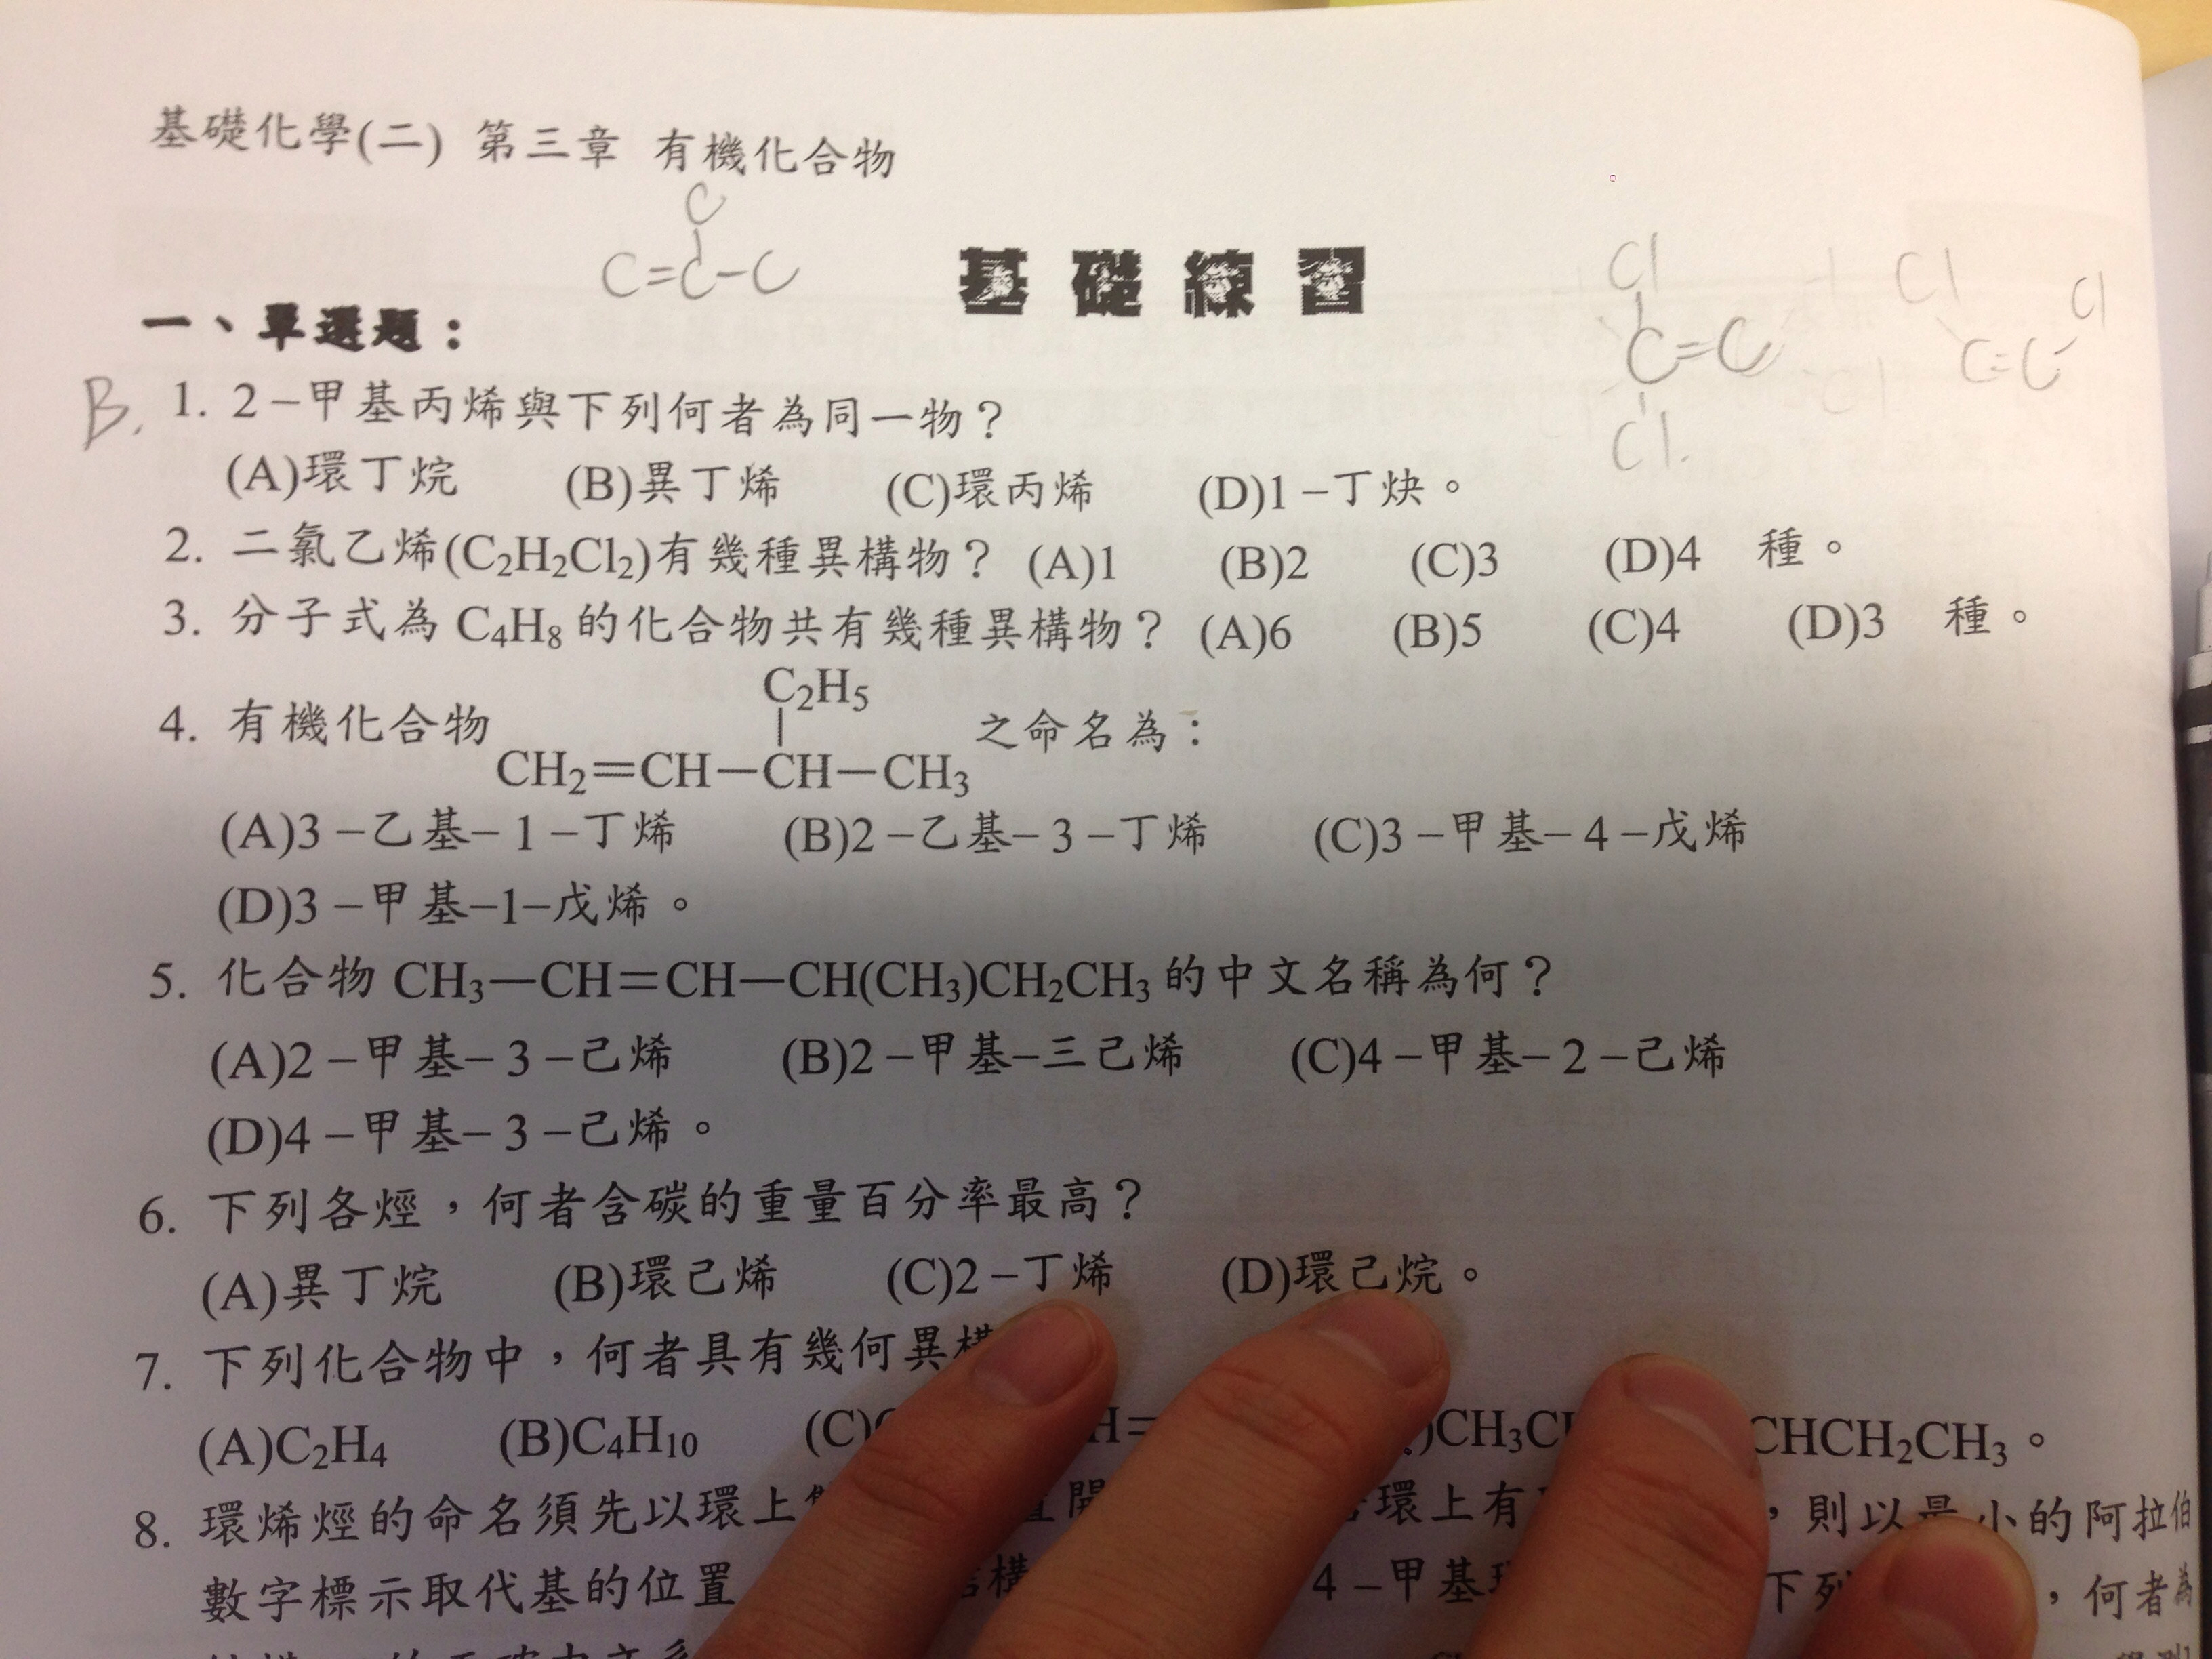 基礎化學(二) 第三章 有機化合物
C
C=C-C
基礎練習
Cl
C=C
Cl.
Cl
Cl
C=C
一、單選題：
B. 1. 2－甲基丙烯與下列何者為同一物？
(A)環丁烷 (B)異丁烯 (C)環丙烯 (D)1－丁炔。
2. 二氯乙烯(C2H2Cl2)有幾種異構物？ (A)1 (B)2 (C)3 (D)4 種。
3. 分子式為 C4H8 的化合物共有幾種異構物？ (A)6 (B)5 (C)4 (D)3 種。
C2H5
4. 有機化合物 CH2=CH－CH－CH3 之命名為：
(A)3－乙基－1－丁烯 (B)2－乙基－3－丁烯 (C)3－甲基－4－戊烯
(D)3－甲基－1－戊烯。
5. 化合物 CH3－CH=CH－CH(CH3)CH2CH3 的中文名稱為何？
(A)2－甲基－3－己烯 (B)2－甲基－三己烯 (C)4－甲基－2－己烯
(D)4－甲基－3－己烯。
6. 下列各烴，何者含碳的重量百分率最高？
(A)異丁烷 (B)環己烯 (C)2－丁烯 (D)環己烷。
7. 下列化合物中，何者具有幾何異構
(A)C2H4 (B)C4H10 (C) H= )CH3C CHCH2CH3。
8. 環烯烴的命名須先以環上 環上有 ，則以最小的阿拉伯
數字標示取代基的位置 構 4－甲基 下列 ，何者為